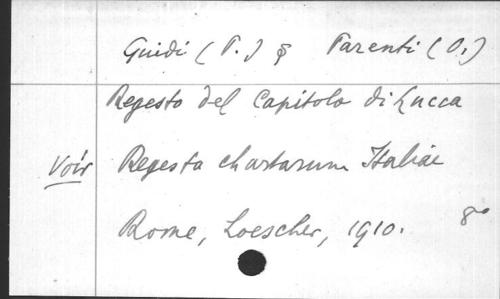 Guidi (P.) & Parenti (O.)
Regesto del Capitolo di Lucca
Voir Regesta chartarum Italiae
Rome, Loescher, 1910. 8º